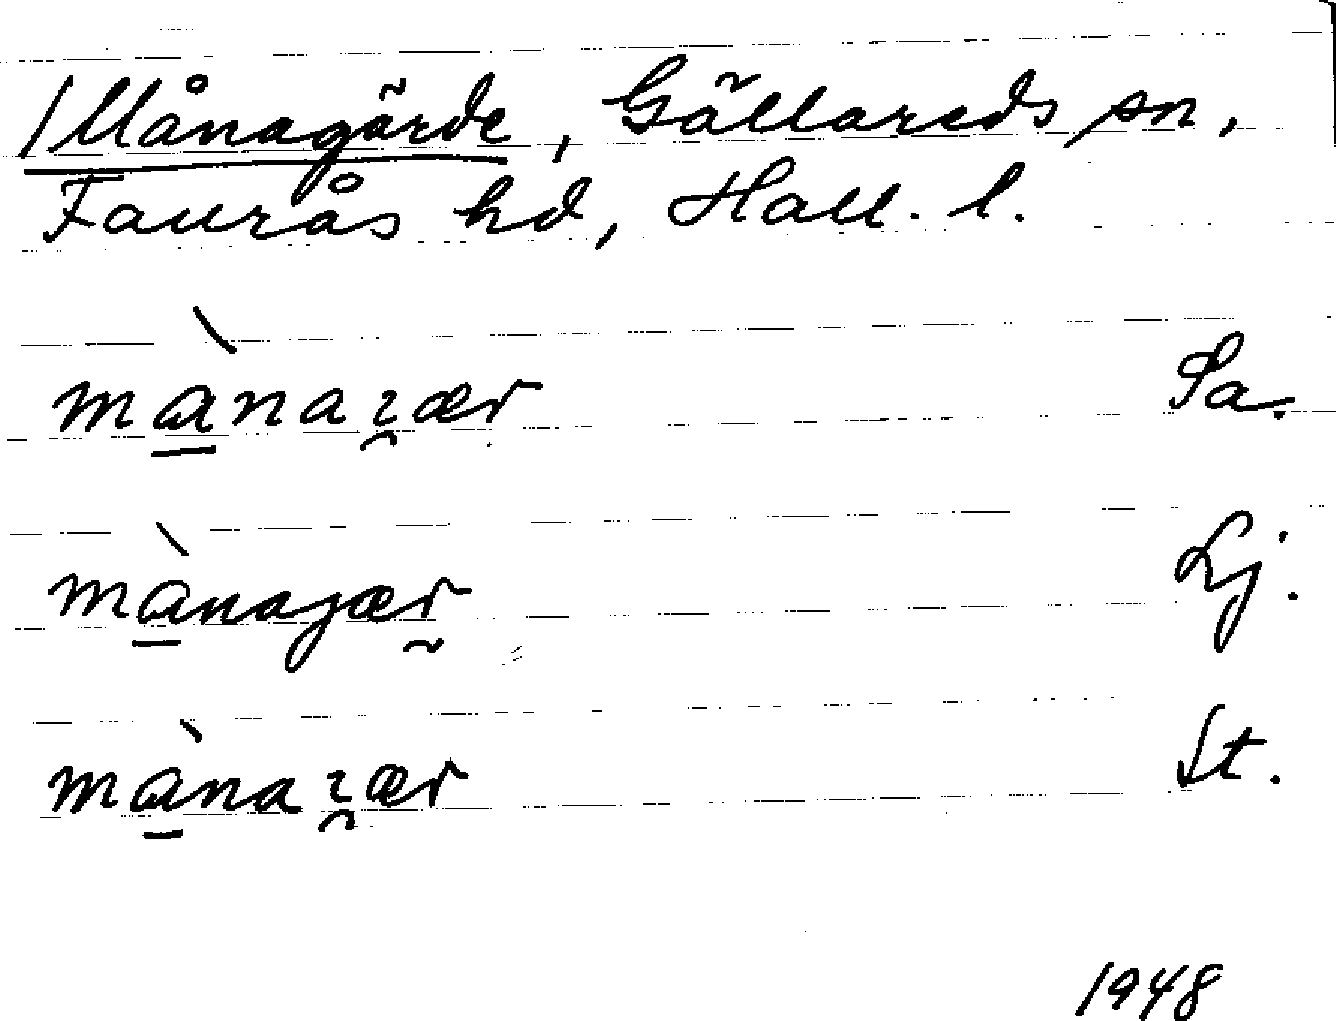 Månagärde, Gällareds sn,
Faurås hd, Hall. l.
mànaɀær Sa.
mànajær Lj.
mànaɀær St.
1948